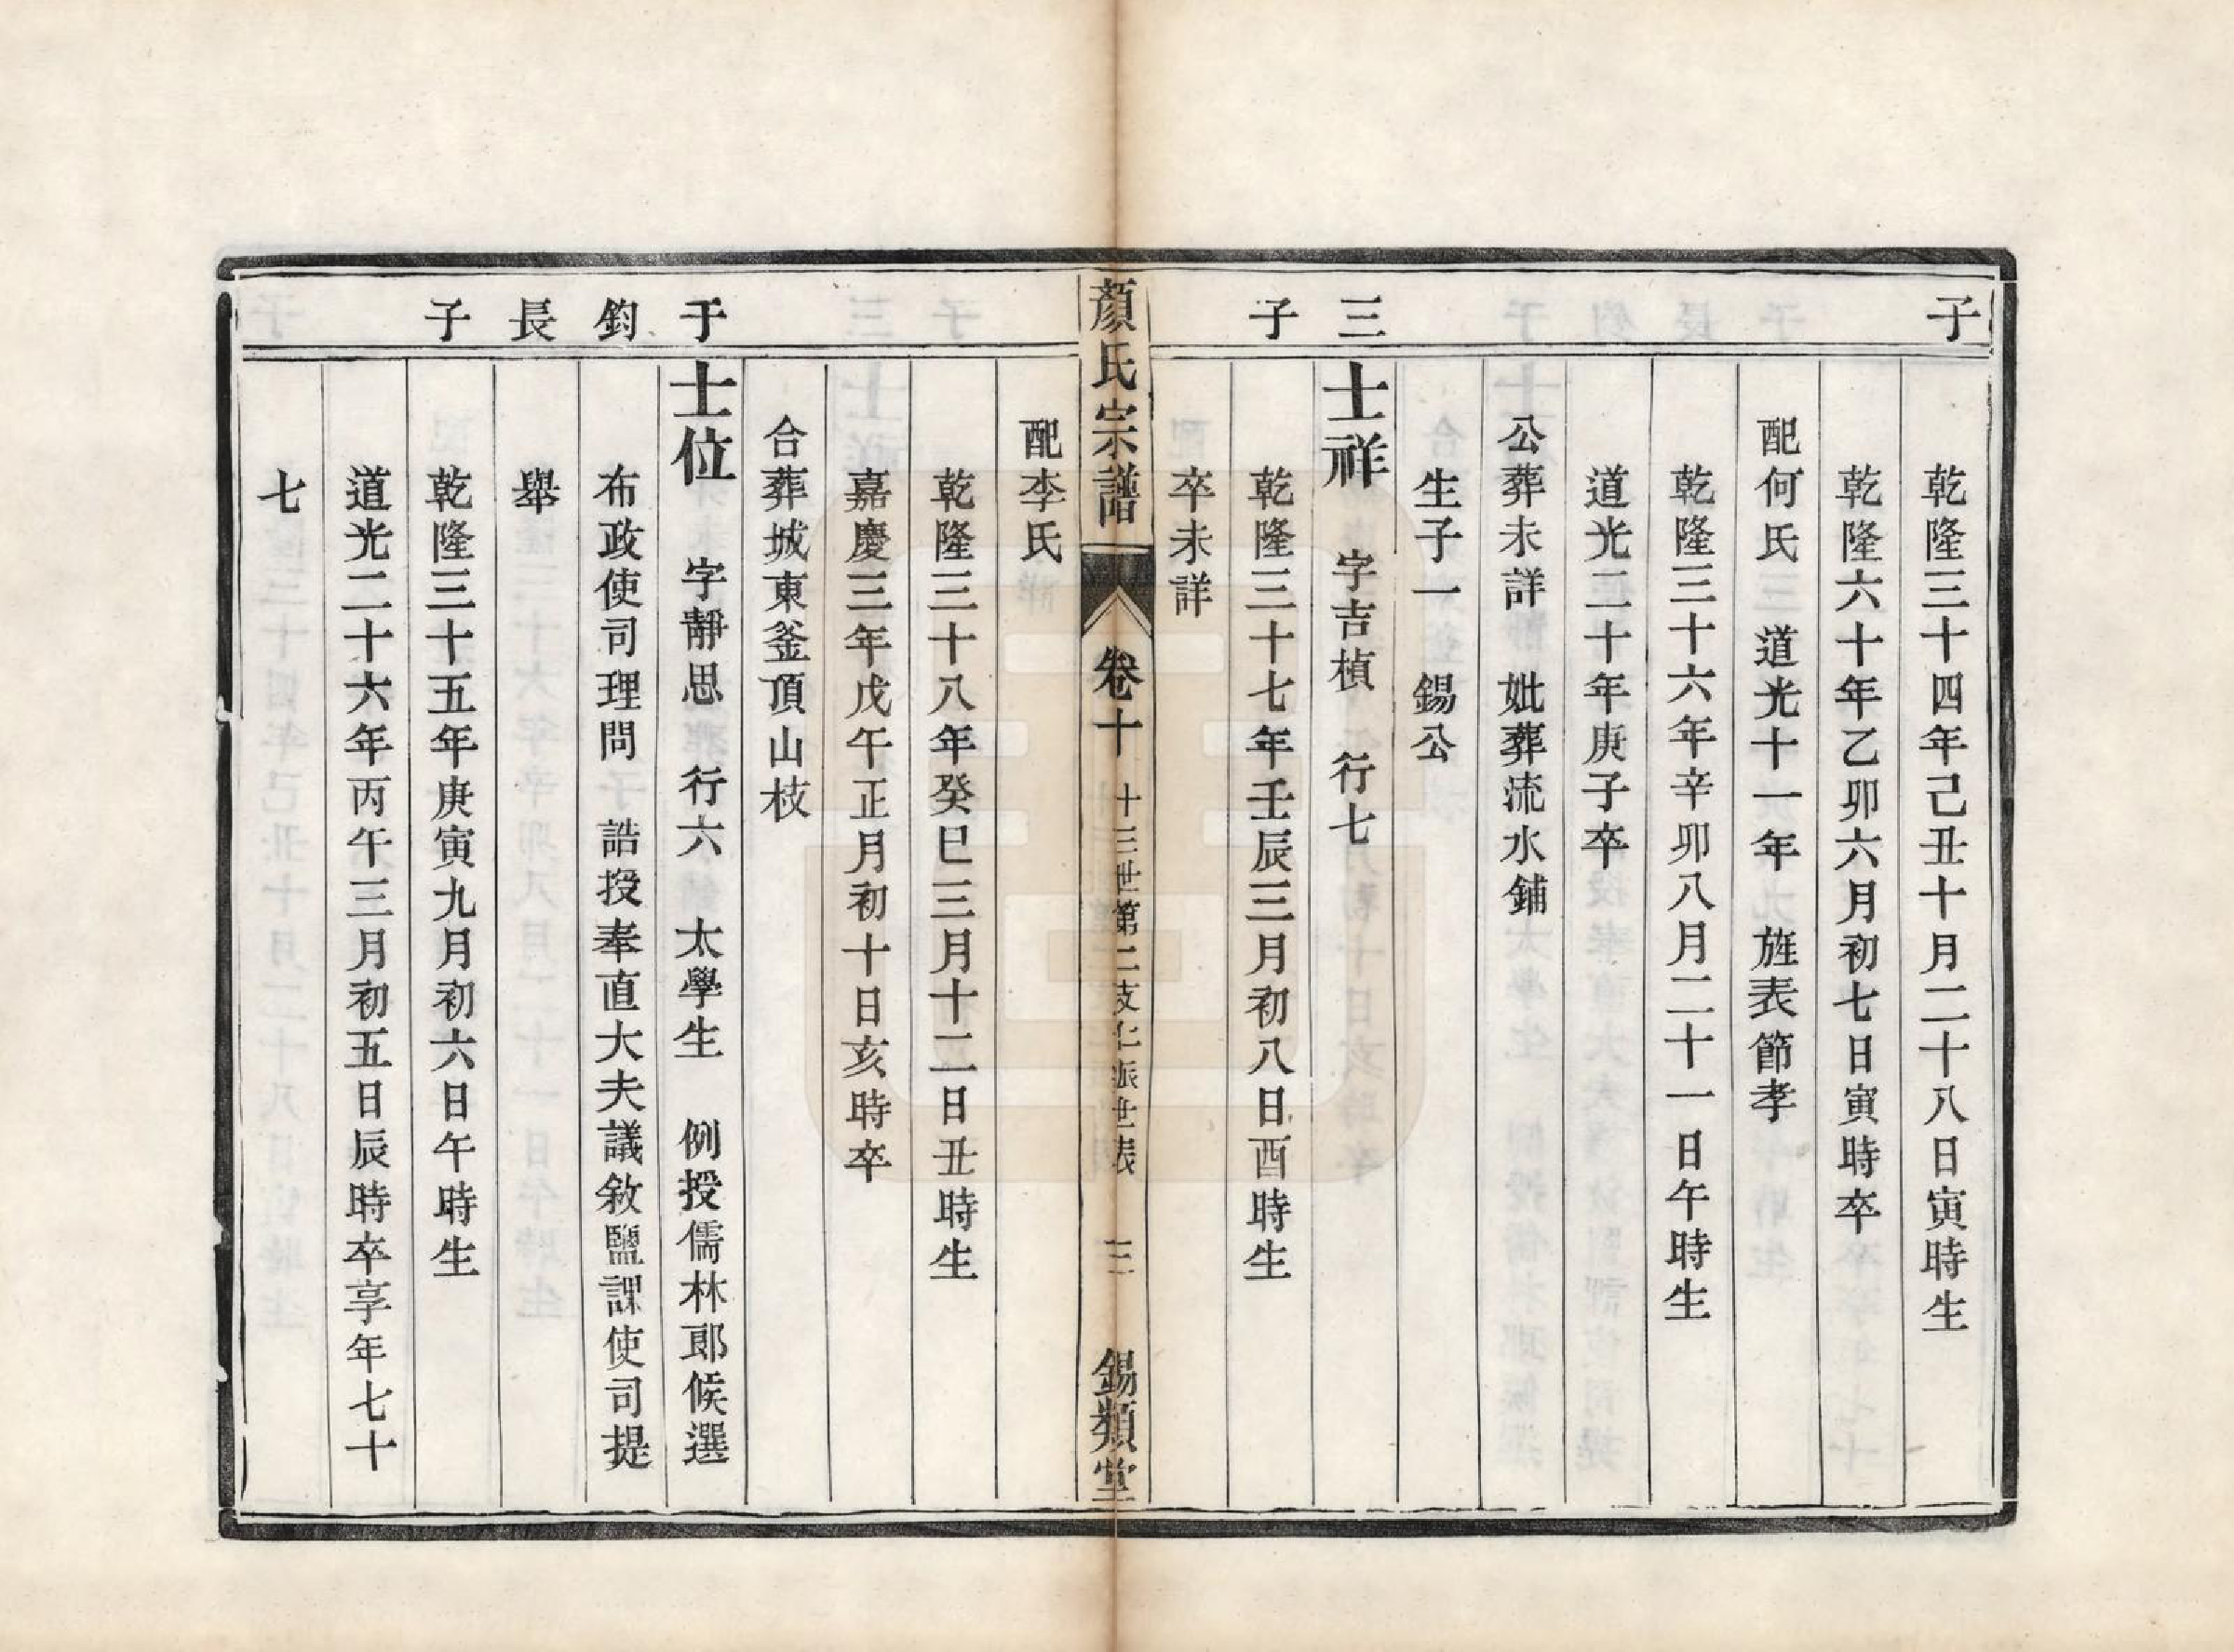 子
乾隆三十四年己丑十月二十八日寅時生
乾隆六十年乙卯六月初七日寅時卒
配何氏　道光十一年　旌表節孝
乾隆三十六年辛卯八月二十一日午時生
道光二十年庚子卒
公葬未詳　妣葬流水鋪
生子一　錫公
三子
士祥　字吉楨　行七
乾隆三十七年壬辰三月初八日酉時生
卒未詳
顏氏宗譜　卷十　十三世第二支仁派世表　三　錫類堂
配李氏
乾隆三十八年癸巳三月十二日丑時生
嘉慶三年戊午正月初十日亥時卒
合葬城東釜頂山枝
于鈞長子
士位　字靜思　行六　太學生　例授儒林郎候選
布政使司理問　誥授奉直大夫議敘鹽課使司提
舉
乾隆三十五年庚寅九月初六日午時生
道光二十六年丙午三月初五日辰時卒享年七十
七